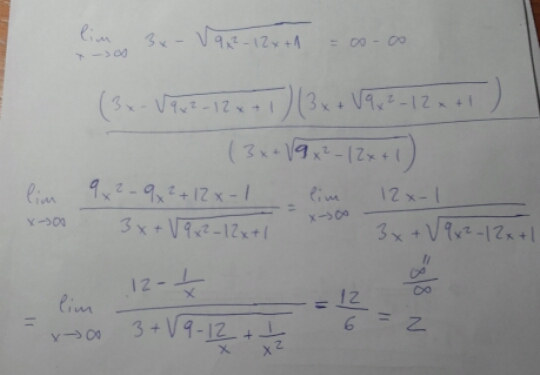 lim x→∞ 3x - √(9x² - 12x + 1) = ∞ - ∞
(3x - √(9x² - 12x + 1))(3x + √(9x² - 12x + 1)) / (3x + √(9x² - 12x + 1))
lim x→∞ (9x² - 9x² + 12x - 1) / (3x + √(9x² - 12x + 1)) = lim x→∞ (12x - 1) / (3x + √(9x² - 12x + 1))
" ∞/∞
= lim x→∞ (12 - 1/x) / (3 + √(9 - 12/x + 1/x²)) = 12/6 = 2